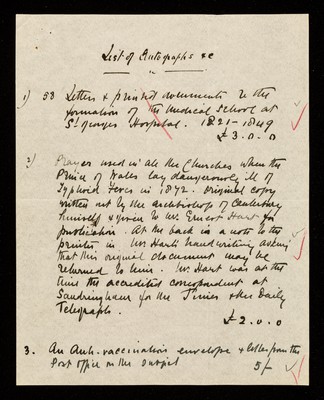 List of Autographs &c
1) 53 Letters & printed documents re the
formation of the Medical School at
St. Georges Hospital. 1821-1849
£3.0.0
2) Prayer used in all the Churches when the
Prince of Wales lay dangerously ill of
Typhoid Fever in 1872. Original copy
written out by the Archbishop of Canterbury
himself & given to Mr. Ernest Hart for
publication. At the back is a note to the
printer in Mr Hart's handwriting asking
that this original document may be
returned to him. Mr. Hart was at the
time the accredited correspondent at
Sandringham for the Times & the Daily
Telegraph.
£2.0.0
3. An Anti-vaccination envelope & letter from the
Post Office on the subject 5/-